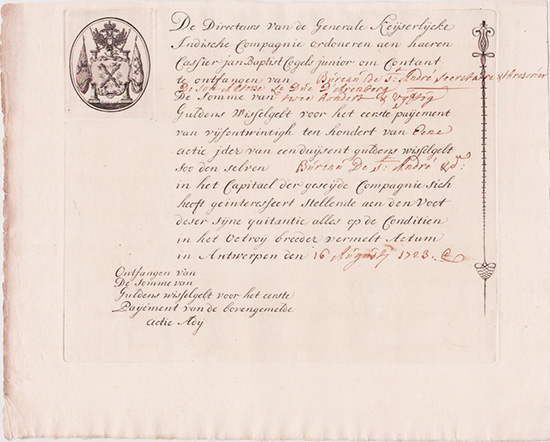 De Directeurs van de Generale Keijserlijcke
Indische Compagnie ordoneren aen haeren
Cassier jan Baptist Cogels junior om Contant
te ontfangen van Bureau De St. André Secretaire & thresorier
De Son Altesse Le Duc D'Arenberg
De Somme van twee hondert & vyftig
Guldens Wisselgelt voor het eerste payement
van vijfentwintigh ten hondert van Eene
actie jder van eenduijsent guldens wisselgelt
soo den selven Bureau De St. André &d:
in het Capitael der geseijde Compagnie sich
heeft geinteresseert Stellende aen den Voot
deser sijne quitantie alles op de Conditien
in het Octroy breeder vermelt Actum
in Antwerpen den 16 Augusty 1723.
Ontfangen van
De Somme van
Guldens wisselgelt voor het eerste
Payement van de bovengemelde
actie Ady